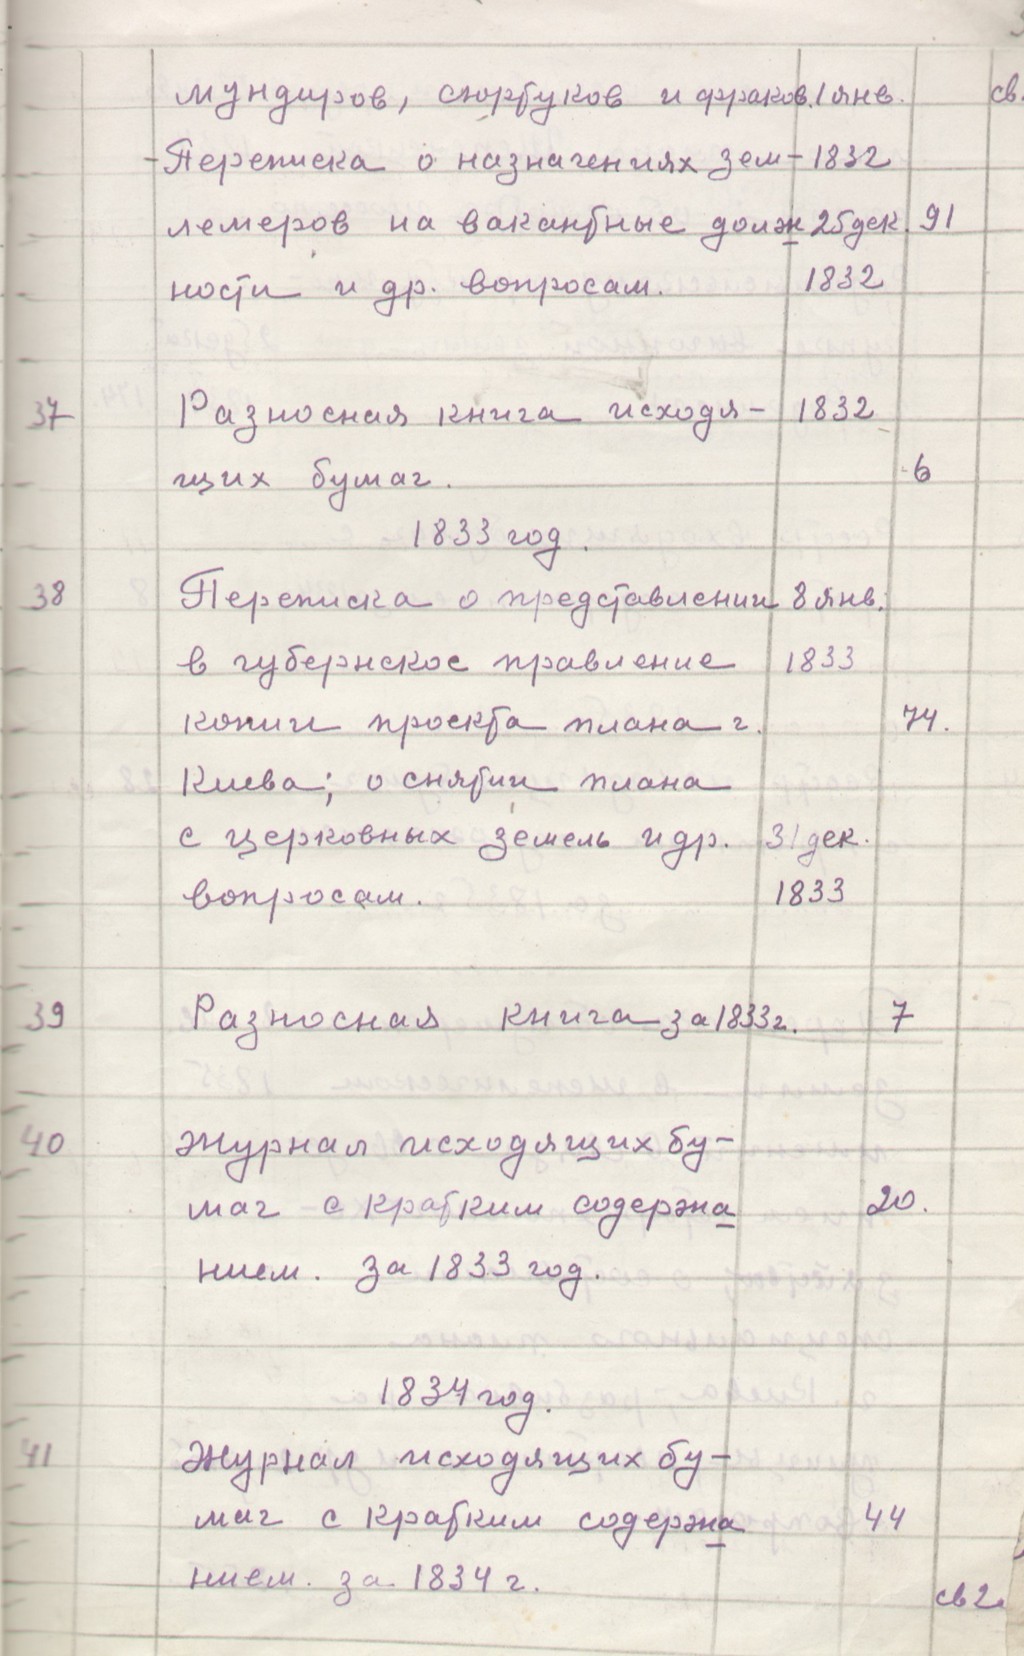 мундиров, сюртуков и фраков. 1 янв. св.
-Переписка о назначениях зем- 1832
лемеров на вакантные долж 25 дек. 91
ности и др. вопросам. 1832
37 Разносная книга исходя- 1832
щих бумаг. 6
1833 год.
38 Переписка о представлении 8 янв.
в губернское правление 1833
копии проекта плана г. 74.
Киева; о снятии плана
с церковных земель и др. 31 дек.
вопросам. 1833
39 Разносная книга за 1833 г. 7
40 Журнал исходящих бу-
маг с кратким содержа 20.
нием. за 1833 год.
1834 год.
41 Журнал исходящих бу-
маг с кратким содержа 44
нием. за 1834 г.
св 2.